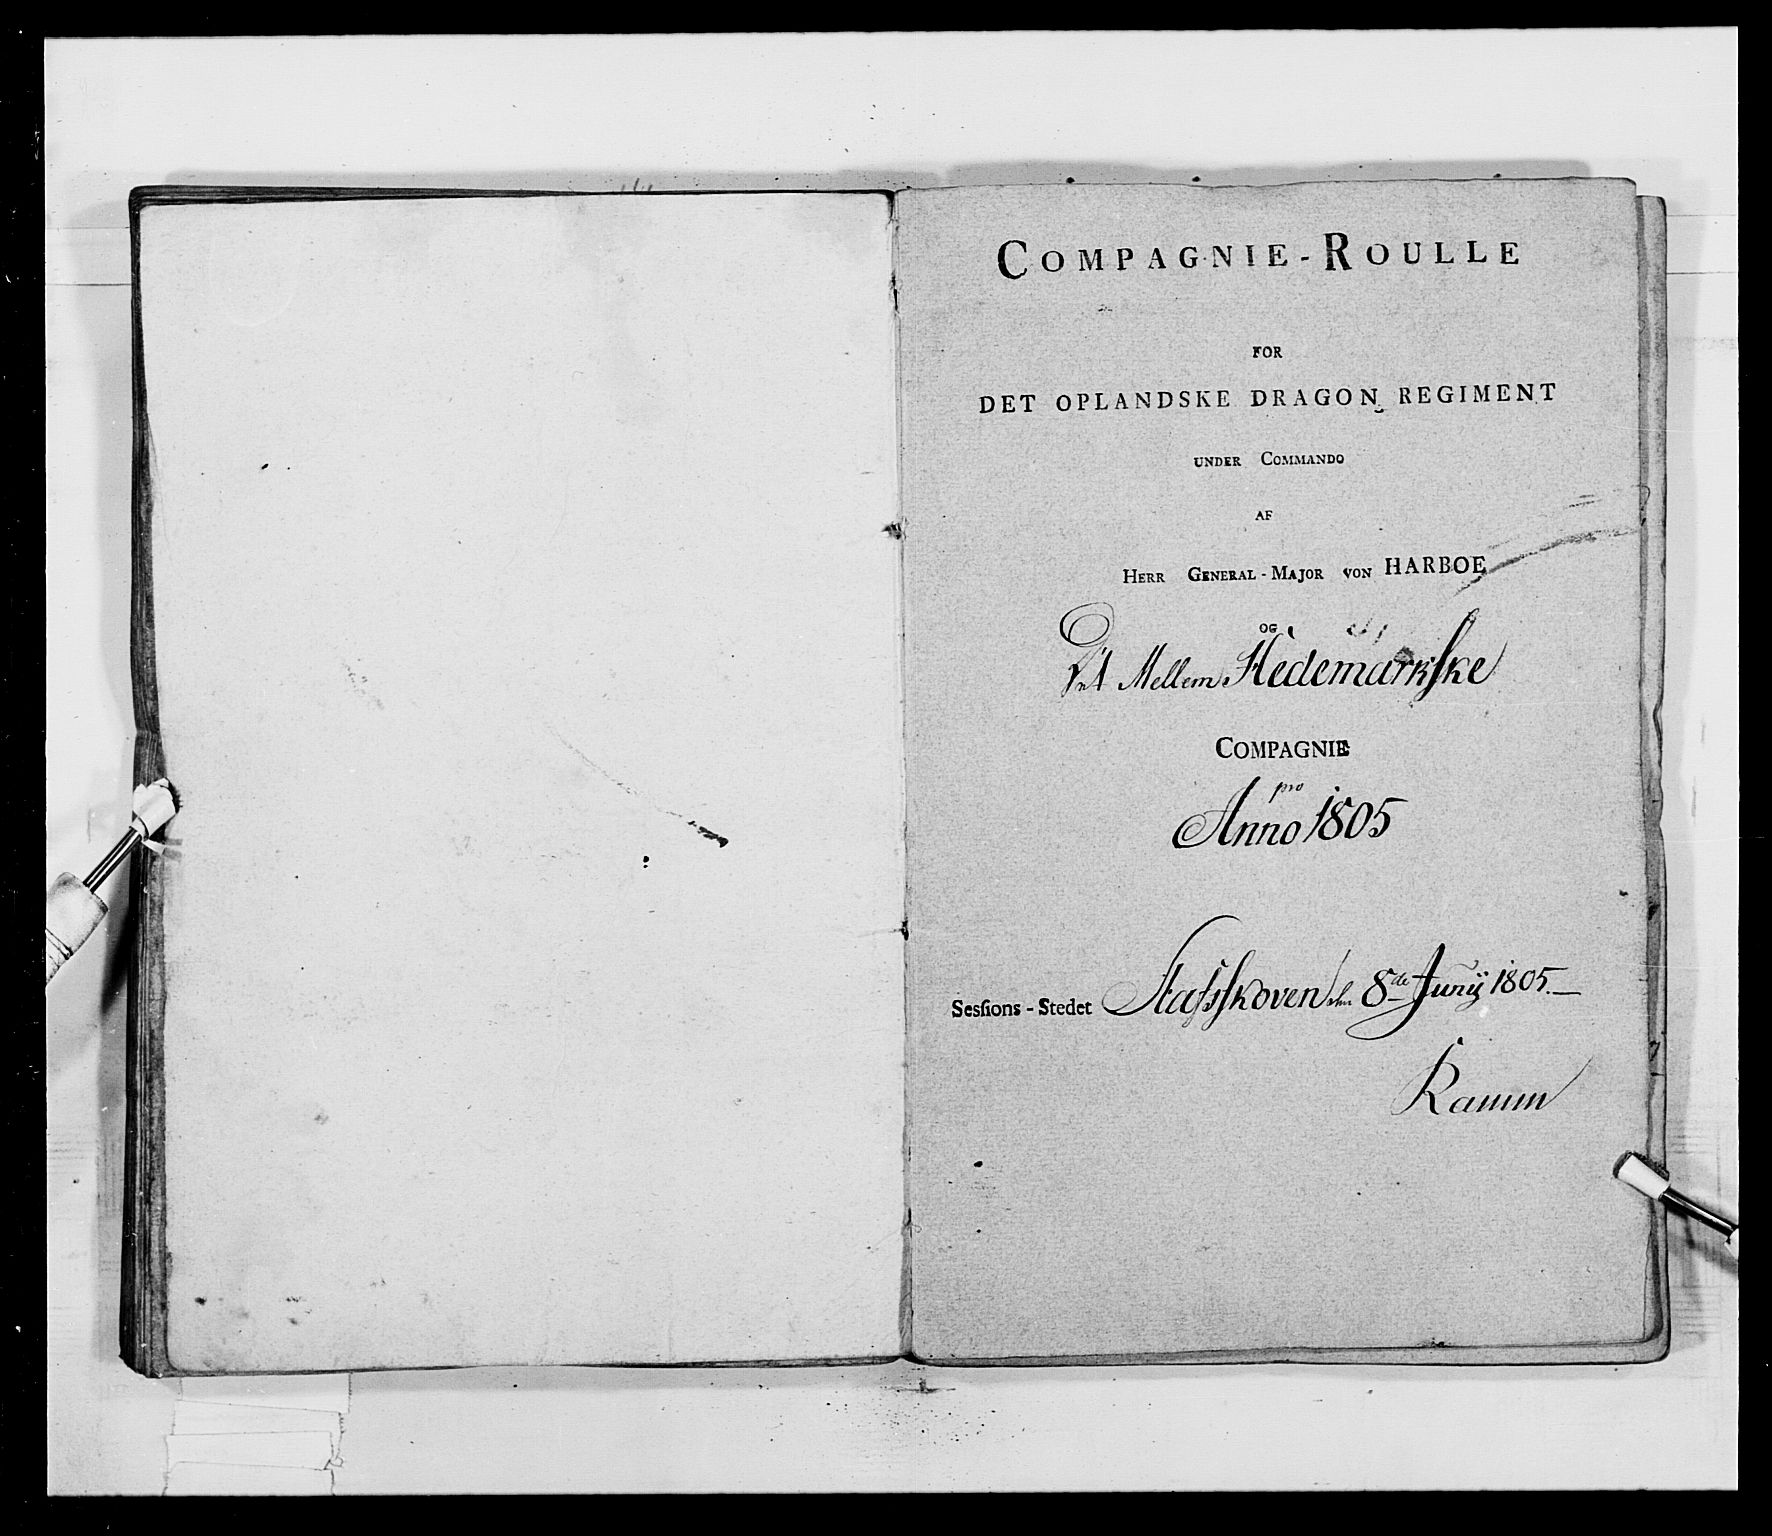 COMPAGNIE-ROULLE
FOR
DET OPLANDSKE DRAGON REGIMENT
UNDER COMMANDO
AF
HERR GENERAL-MAJOR VON HARBOE
OG
Det Mellem Hedemarkske
COMPAGNIE
pro
Anno 1805
Sesſions-Stedet Stafsskoven den 8de Junÿ 1805.
Ramm